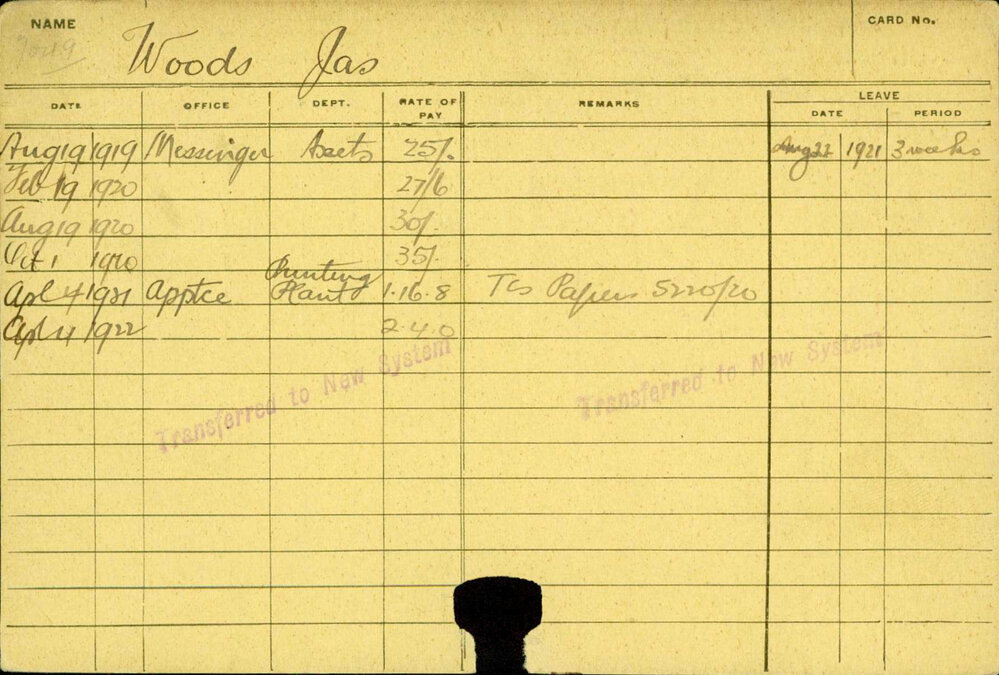 NAME
CARD No.
Woods Jas
LEAVE
DATE OFFICE DEPT. RATE OF PAY REMARKS DATE PERIOD
Aug 19 1919 Messenger 25/. Aug 22 1921 3 weeks
Feb 19 1920 27/6
Aug 19 1920 30/.
Oct 1 1920 35/.
Apl 4 1921 Apptce Printing Plant 1.16.8 TCs Papers 5220/20
Apl 4 1922 2.4.0
Transferred to New System Transferred to New System